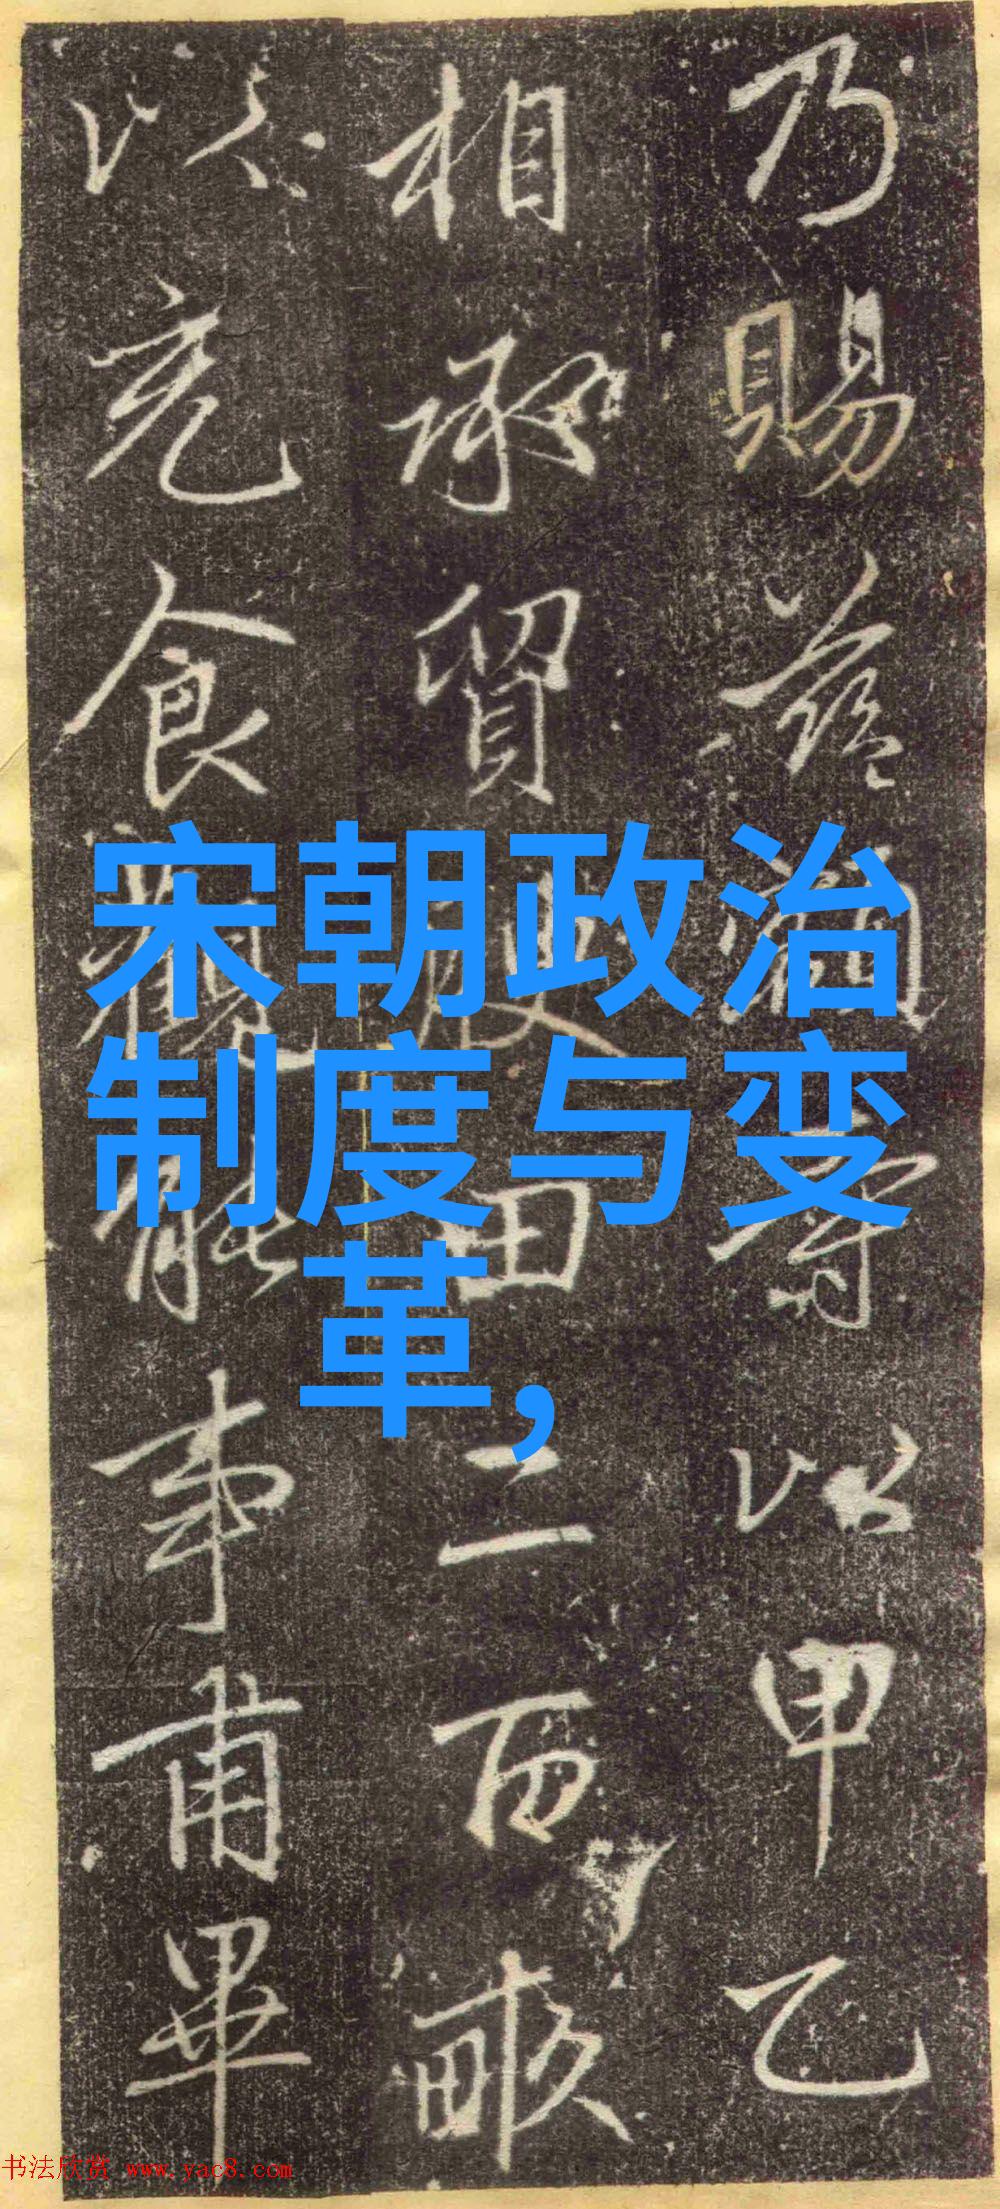 宋朝政治
制度与变
革，
乃賜以甲乙
相承貿腴田二百畝
以充食觀能事甫畢
书法欣赏 www.yac8.com